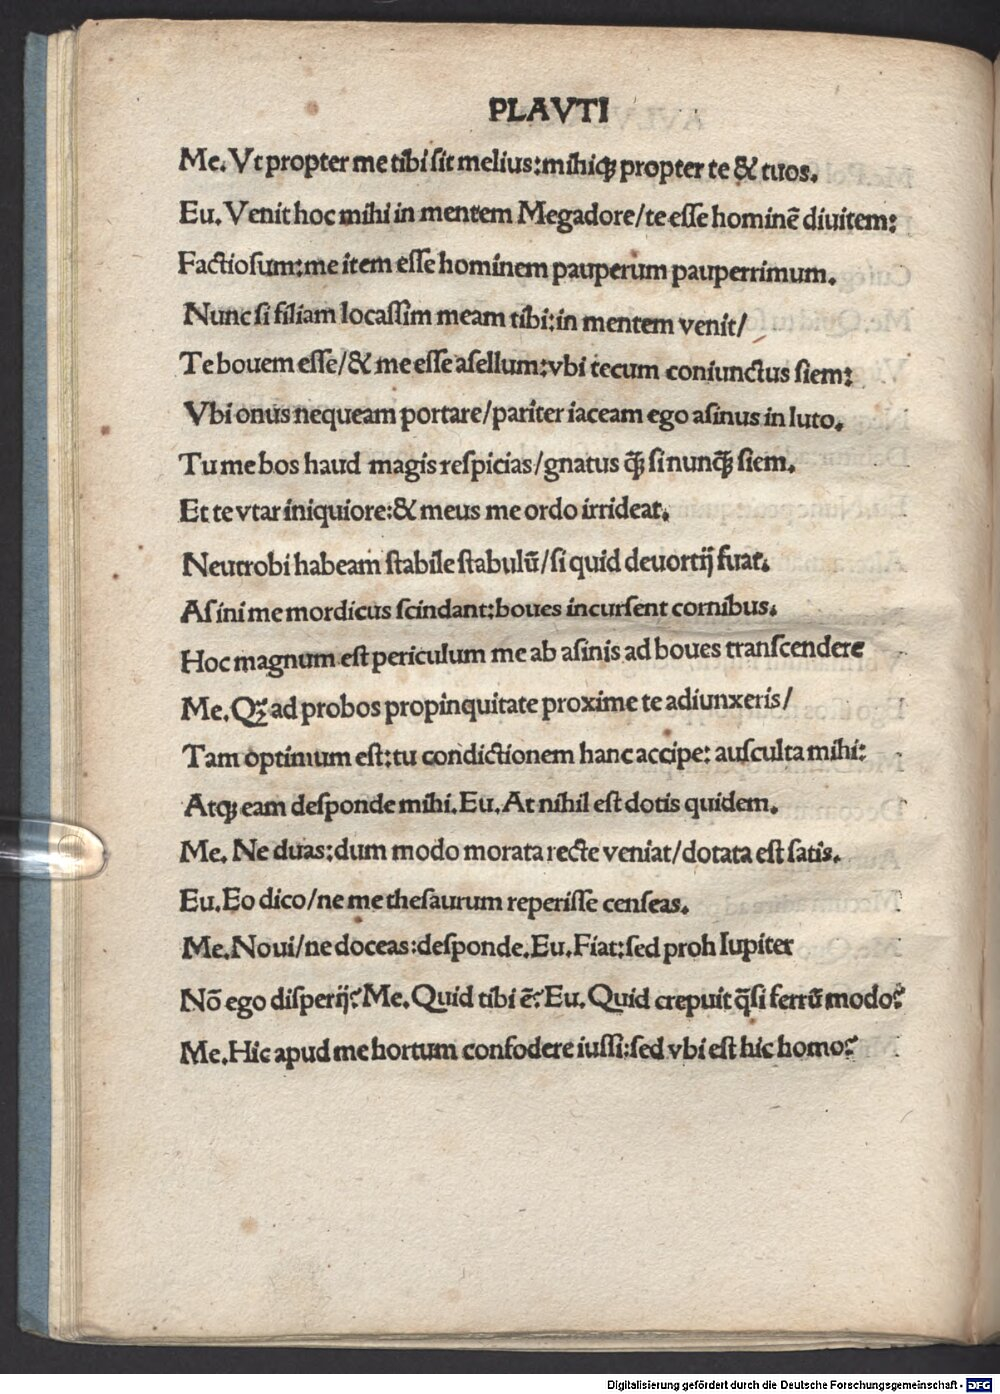 PLAVTI
Me. Vt propter me tibi ſit melius: mihiqꝫ propter te & tuos.
Eu. Venit hoc mihi in mentem Megadore/te eſſe hominē diuitem:
Factioſum: me item eſſe hominem pauperum pauperrimum.
Nunc ſi filiam locaſſim meam tibi: in mentem venit/
Te bouem eſſe/& me eſſe aſellum: vbi tecum coniunctus ſiem:
Vbi onus nequeam portare/pariter iaceam ego aſinus in luto.
Tu me bos haud magis reſpicias/gnatus qꝫ̄ ſi nunqꝫ̄ ſiem.
Et te vtar iniquiore: & meus me ordo irrideat.
Neutrobi habeam ſtabile ſtabulū/ſi quid deuortij fuat.
Aſini me mordicus ſcindant: boues incurſent cornibus.
Hoc magnum eſt periculum me ab aſinis ad boues tranſcendere
Me. Qꝫ ad probos propinquitate proxime te adiunxeris/
Tam optimum eſt: tu condictionem hanc accipe: auſculta mihi:
Atqꝫ eam deſponde mihi. Eu. At nihil eſt dotis quidem.
Me. Ne duas: dum modo morata recte veniat/dotata eſt ſatis.
Eu. Eo dico/ne me theſaurum reperiſſe cenſeas.
Me. Noui/ne doceas: deſponde. Eu. Fiat: ſed proh Iupiter
Nō ego diſperij? Me. Quid tibi ē? Eu. Quid crepuit q̄ſi ferrū modo?
Me. Hic apud me hortum confodere iuſſi: ſed vbi eſt hic homo?
Digitalisierung gefördert durch die Deutsche Forschungsgemeinschaft - DFG